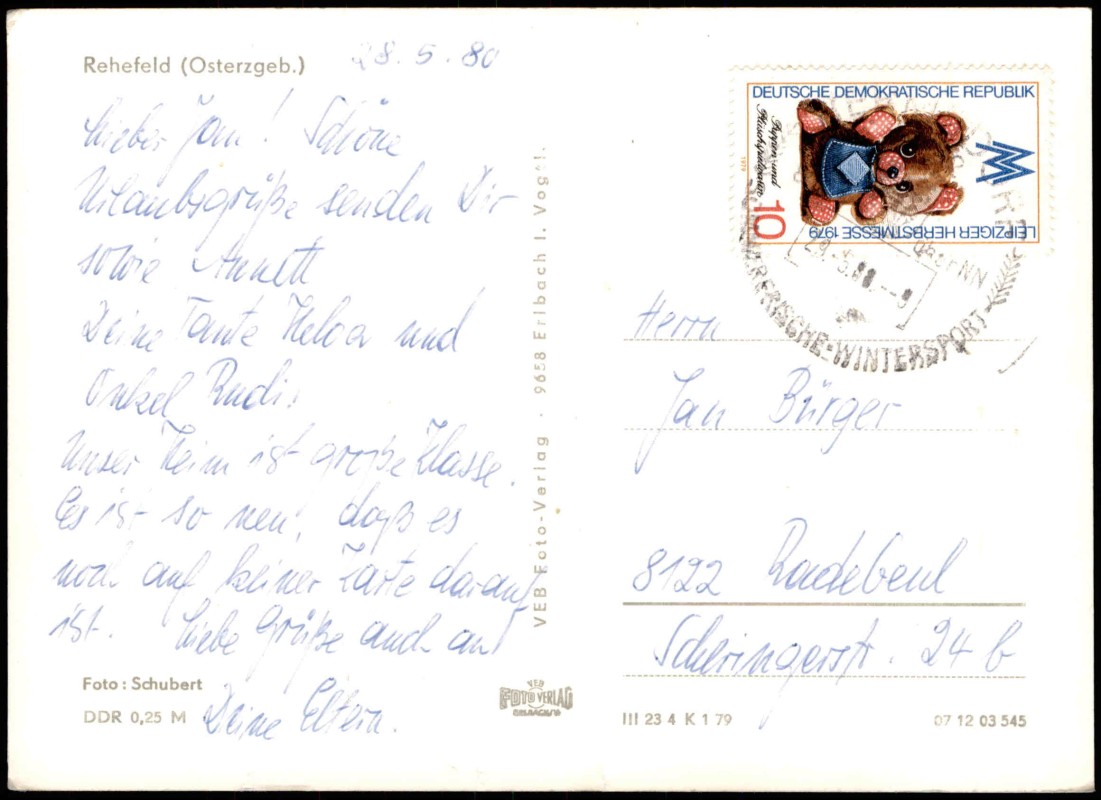 Rehefeld (Osterzgeb.)
28.5.80
Lieber Jan! Schöne
Urlaubsgrüße senden Dir
sowie Annett
Deine Tante Helga und
Onkel Rudi.
Unser Heim ist große Klasse.
Es ist so neu, daß es
noch auf keiner Karte darauf
ist. Liebe Grüße auch an
Deine Eltern.
Foto: Schubert
DDR 0,25 M
VEB Foto-Verlag · 9658 Erlbach i. Vogtl.
VEB
FOTO VERLAG
ERLBACH
DEUTSCHE DEMOKRATISCHE REPUBLIK
Puppen und
Plüschspielwaren
1979
10
LEIPZIGER HERBSTMESSE 1979
über NN
29.-5.80.--9
WINTERSPORT
Herrn
Jan Bürger
8122 Radebeul
Scheringerstr. 24 b
III 23 4 K 1 79
07 12 03 545